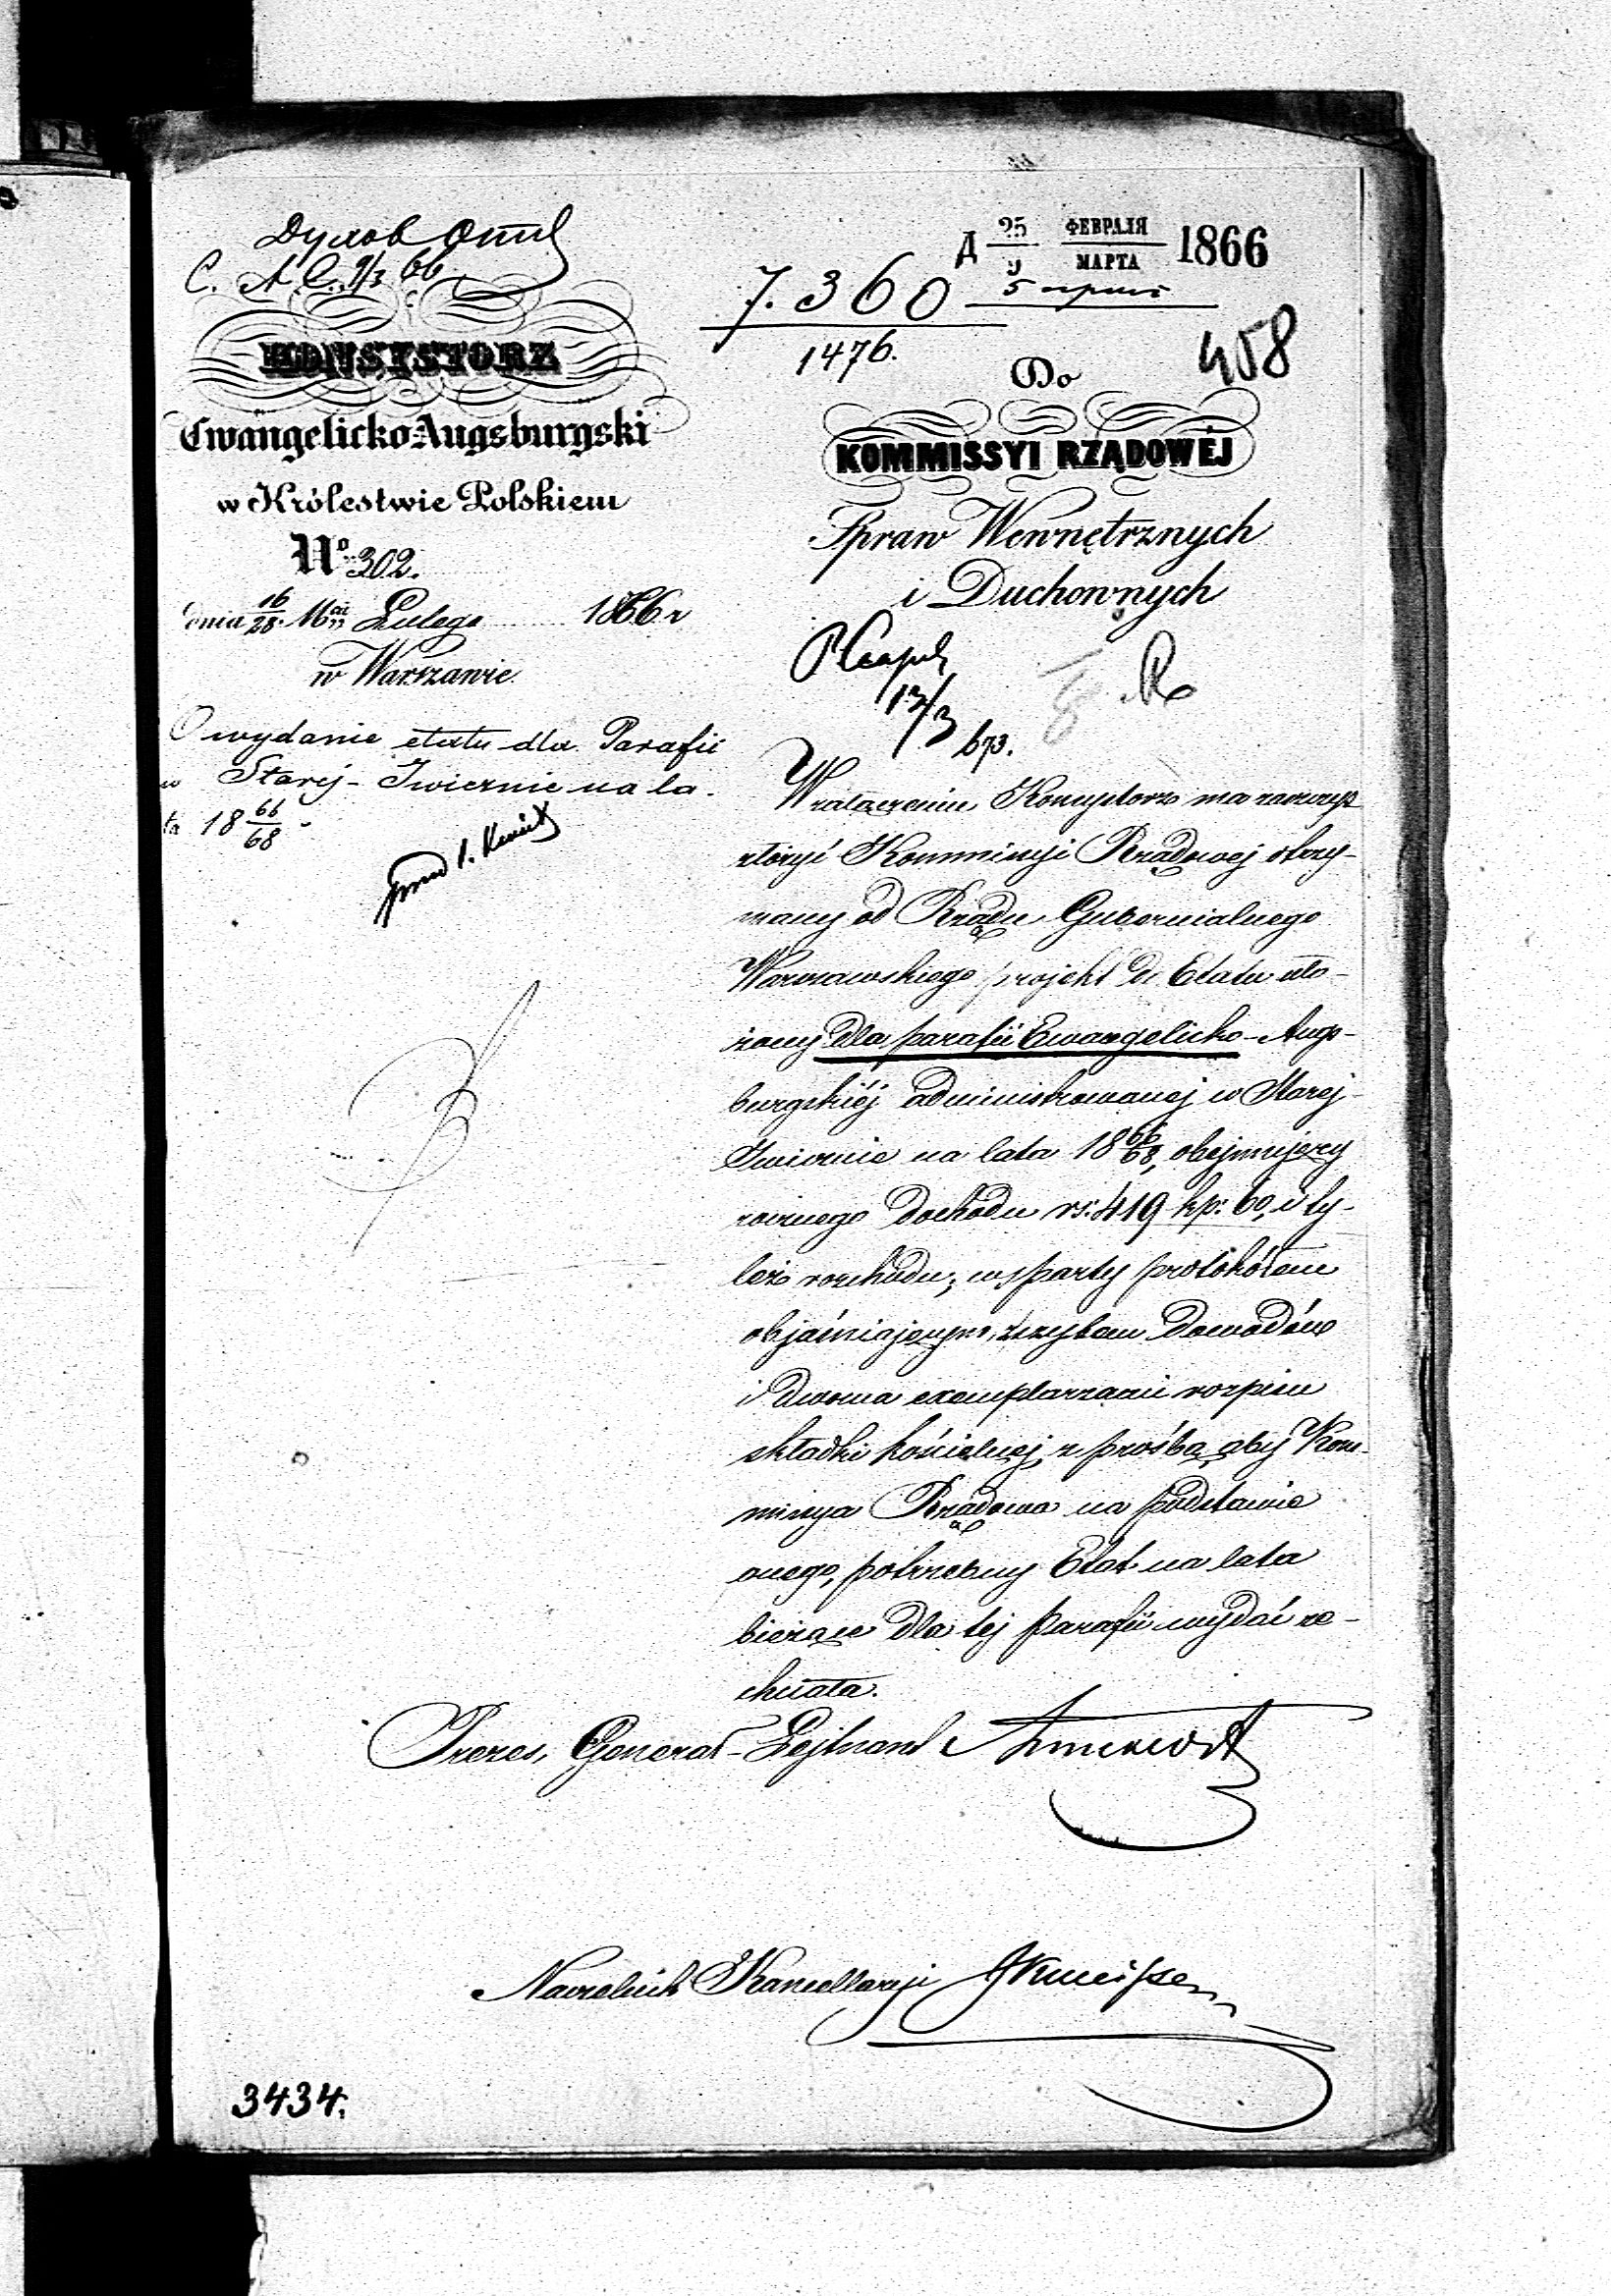 Духов Отд
С. А. С. 9/3 66
Д 25/9 ФЕВРАЛЯ/МАРТА 1866
7.360
1476.
458
KONSYSTORZ
Ewangelicko-Augsburgski
w Królestwie Polskiem
No 302.
dnia 16/28 Mca Lutego 1866 r
w Warszawie.
O wydanie etatu dla Parafii
w Starej-Iwicznie na la-
ta 18 66/68.
Do
KOMMISSYI RZĄDOWÉJ
Spraw Wewnętrznych
i Duchownych
13/3 673.
W załączeniu Konsystorz ma zaszczyt
złożyć Kommissyi Rządowej otrzy-
many od Rządu Gubernialnego
Warszawskiego projekt do Etatu uło-
żony dla parafii Ewangelicko-Augs-
burgskiéj administrowanej w Starej-
Iwicznie na lata 18 66/68, obejmujący
rocznego dochodu rs: 419 kp: 60, i ty-
leż rozchodu; wsparty protokółem
objaśniającym, zszytem dowodów
i dwoma exemplarzami rozpisu
składki kościelnej, z prośbą aby Kom-
missya Rządowa na podstawie
onego, potrzebny Etat na lata
bieżące dla tej Parafii wydać ze-
chciała.
Prezes, Generał-Lejtnant
Naczelnik Kancellaryi
3434.